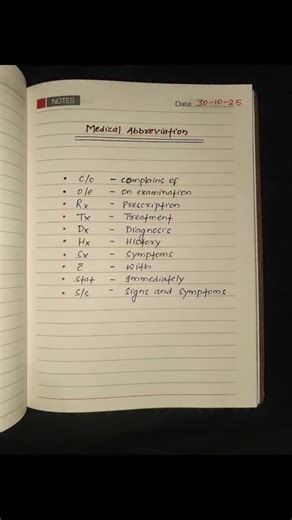 NOTES
Date 30-10-25
Medical Abbreviation
• C/o - complains of
• O/e - on examination
• Rx - Prescription
• Tx - Treatment
• Dx - Diagnosis
• Hx - History
• Sx - Symptoms
• c̄ - With
• Stat - Immediately
• S/s - Signs and Symptoms